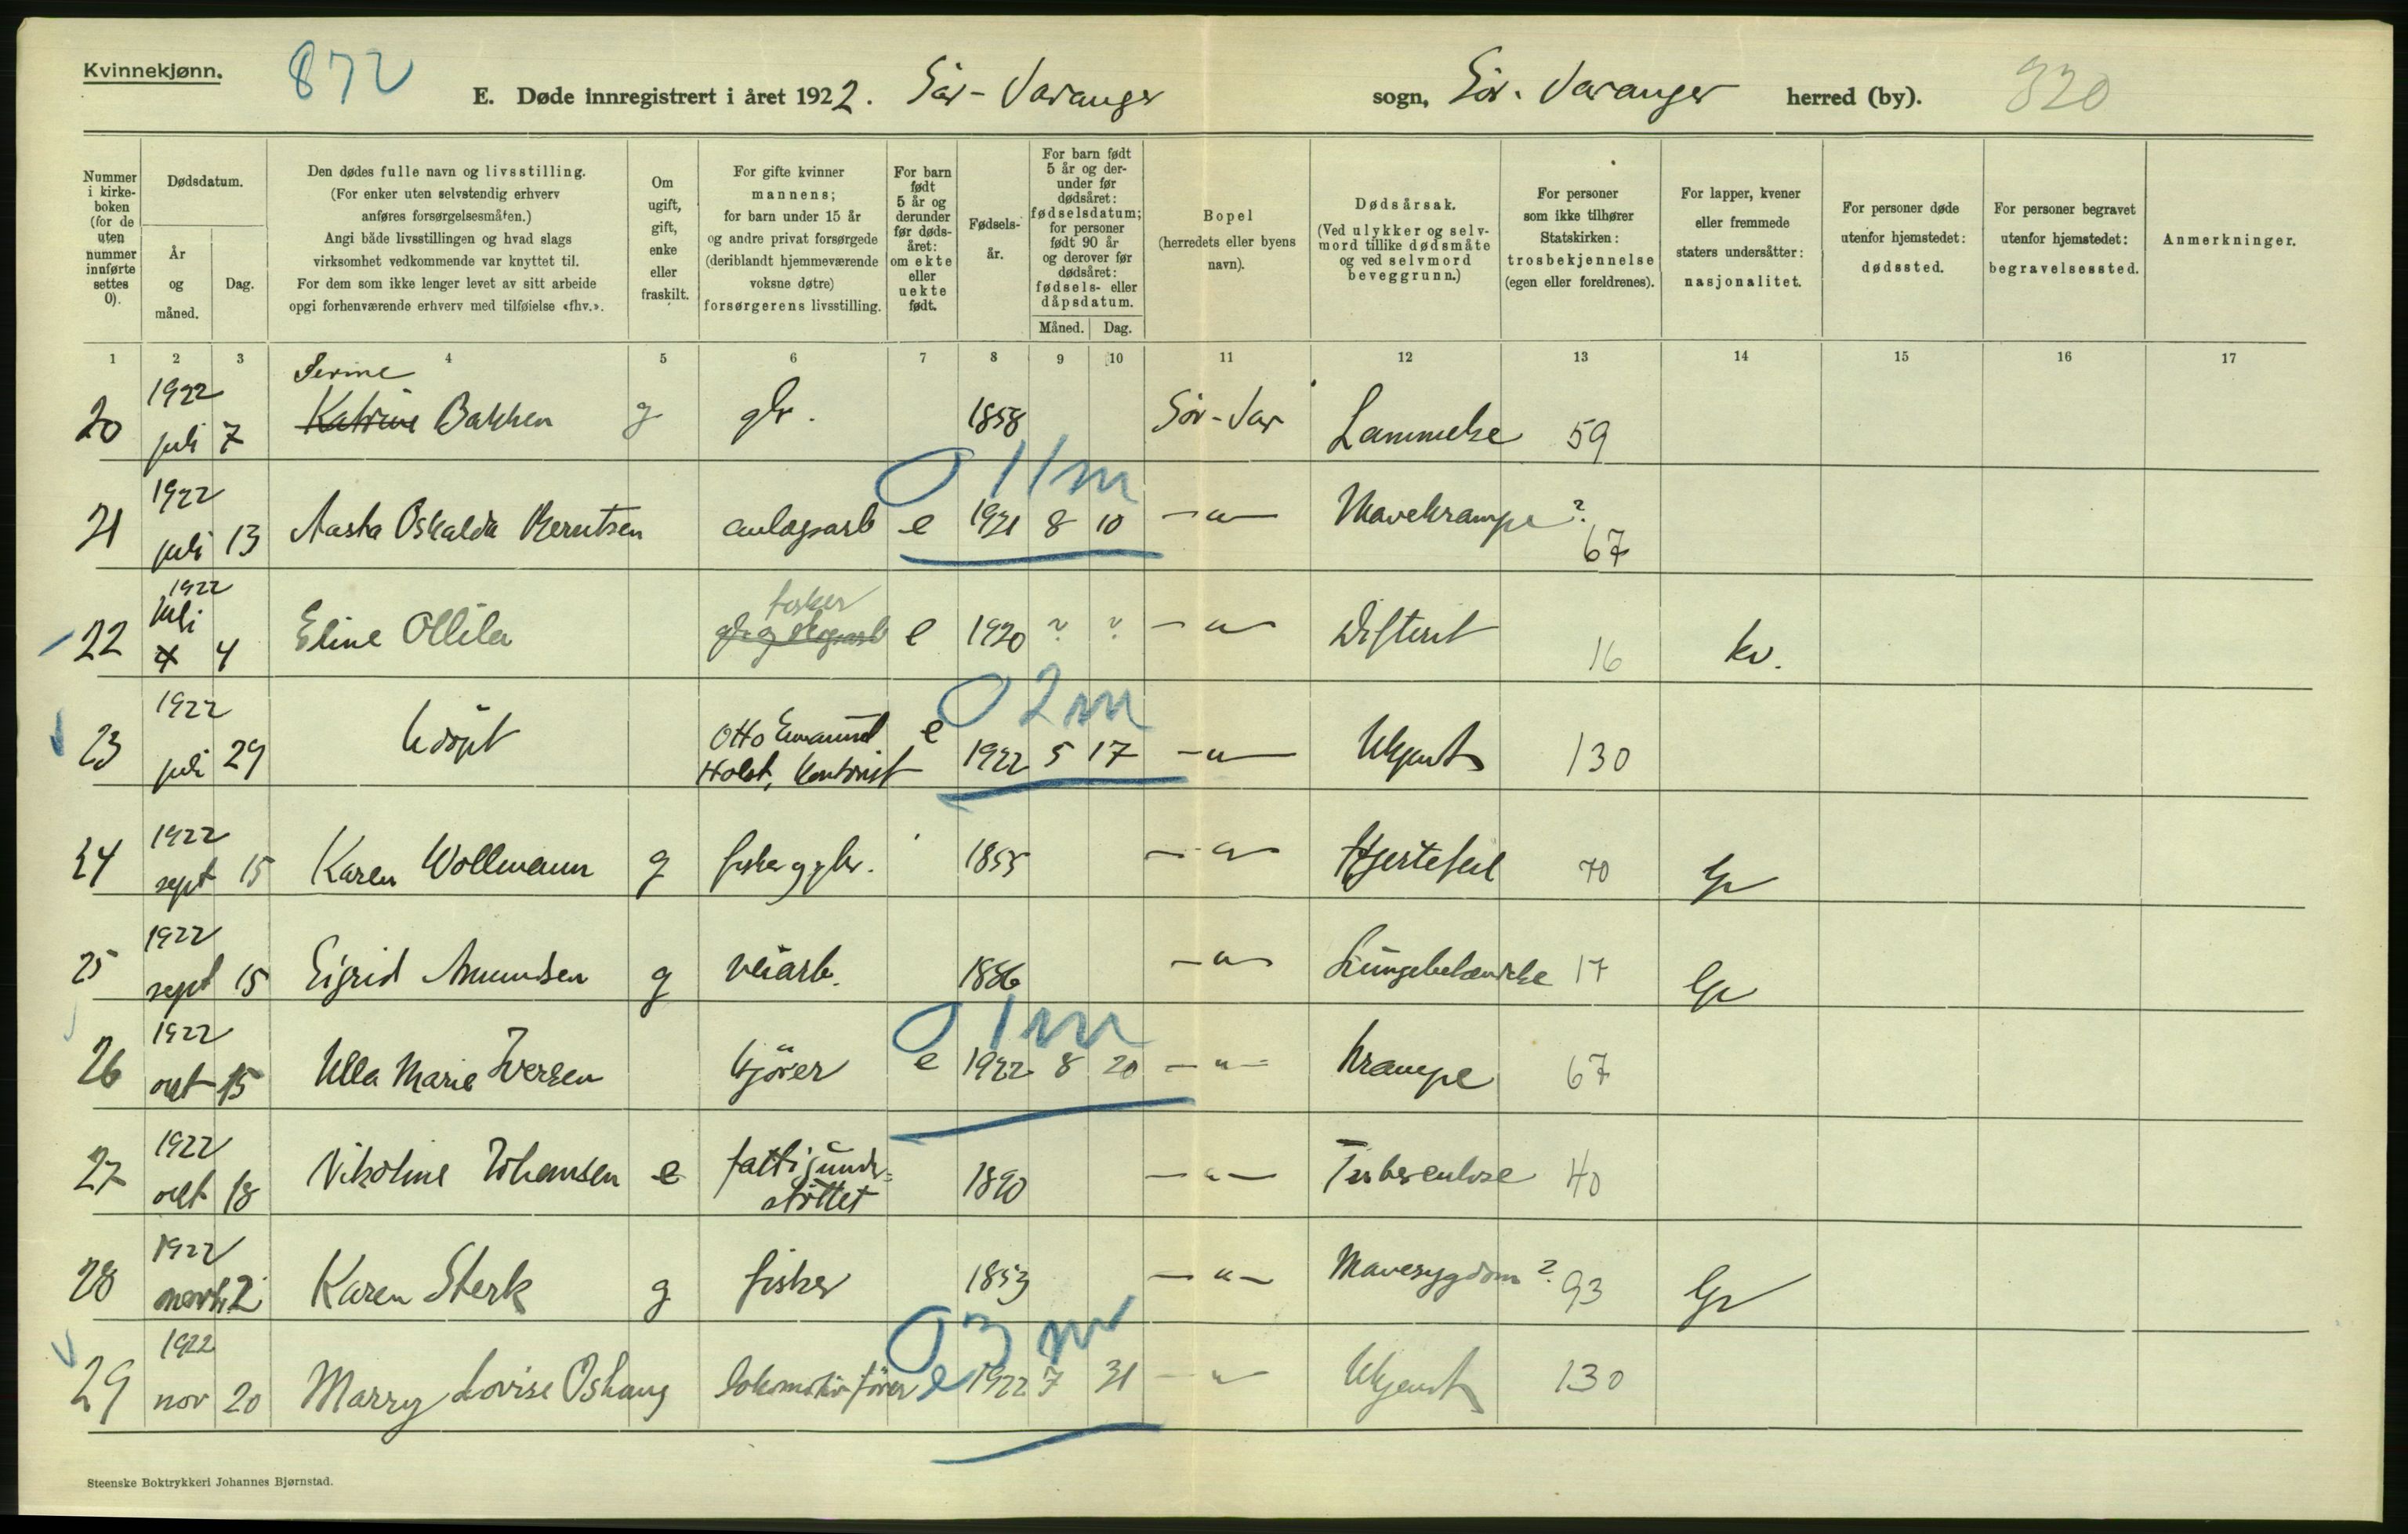 Kvinnekjønn.
872
E. Døde innregistrert i året 1922. Sör-Varanger sogn, Sör-Varanger herred (by). 320
Nummer i kirke-boken (for de uten nummer innførte settes 0).
Dødsdatum.
År og måned.
Dag.
Den dødes fulle navn og livsstilling.
(For enker uten selvstendig erhverv anføres forsørgelsesmåten.)
Angi både livsstillingen og hvad slags virksomhet vedkommende var knyttet til.
For dem som ikke lenger levet av sitt arbeide opgi forhenværende erhverv med tilføielse «fhv.».
Om ugift, gift, enke eller fraskilt.
For gifte kvinner mannens; for barn under 15 år og andre privat forsørgede (deriblandt hjemmeværende voksne døtre) forsørgerens livsstilling.
For barn født 5 år og derunder før døds-året: om ekte eller uekte født.
Fødsels-år.
For barn født 5 år og der-under før dødsåret: fødselsdatum; for personer født 90 år og derover før dødsåret: fødsels- eller dåpsdatum.
Måned. Dag.
Bopel (herredets eller byens navn).
Dødsårsak.
(Ved ulykker og selv-mord tillike dødsmåte og ved selvmord beveggrunn.)
For personer som ikke tilhører Statskirken: trosbekjennelse (egen eller foreldrenes).
For lapper, kvener eller fremmede staters undersåtter: nasjonalitet.
For personer døde utenfor hjemstedet: dødssted.
For personer begravet utenfor hjemstedet: begravelsessted.
Anmerkninger.
1 2 3 4 5 6 7 8 9 10 11 12 13 14 15 16 17
Serine
20 1922 juli 7 Katrine Bakken g gbr. 1858 Sör-Var Lammelse 59
0 11 m
21 1922 juli 13 Aasta Oskalda Berntsen anlægsarb e 1921 8 10 -"- Mavekrampe? 67
fisker
22 1922 juli 4 Eline Ollila e 1920 ? ? -"- Difterit 16 kv.
0 2 m
23 1922 juli 29 Udöpt Otto Emanuel Holst, kontorist e 1922 5 17 -"- Ukjent 130
24 1922 sept 15 Karen Wollmann g fisker g gbr. 1855 -"- Hjertefeil 70 lp
25 1922 sept 15 Sigrid Amundsen g veiarb. 1886 -"- Lungebetændelse 17 lp
0 1 m
26 1922 okt 15 Ulla Marie Iversen kjörer e 1922 8 20 -"- Krampe 67
27 1922 okt 18 Nikoline Johansen e fattigunder=stöttet 1890 -"- Tuberculose 40
28 1922 novb. 2 Karen Sterk g fisker 1853 -"- Mavesygdom? 93 lp
0 3 m
29 1922 nov 20 Marry Lovise Oshaug lokomotivförer e 1922 7 31 -"- Ukjent 130
Steenske Boktrykkeri Johannes Bjørnstad.